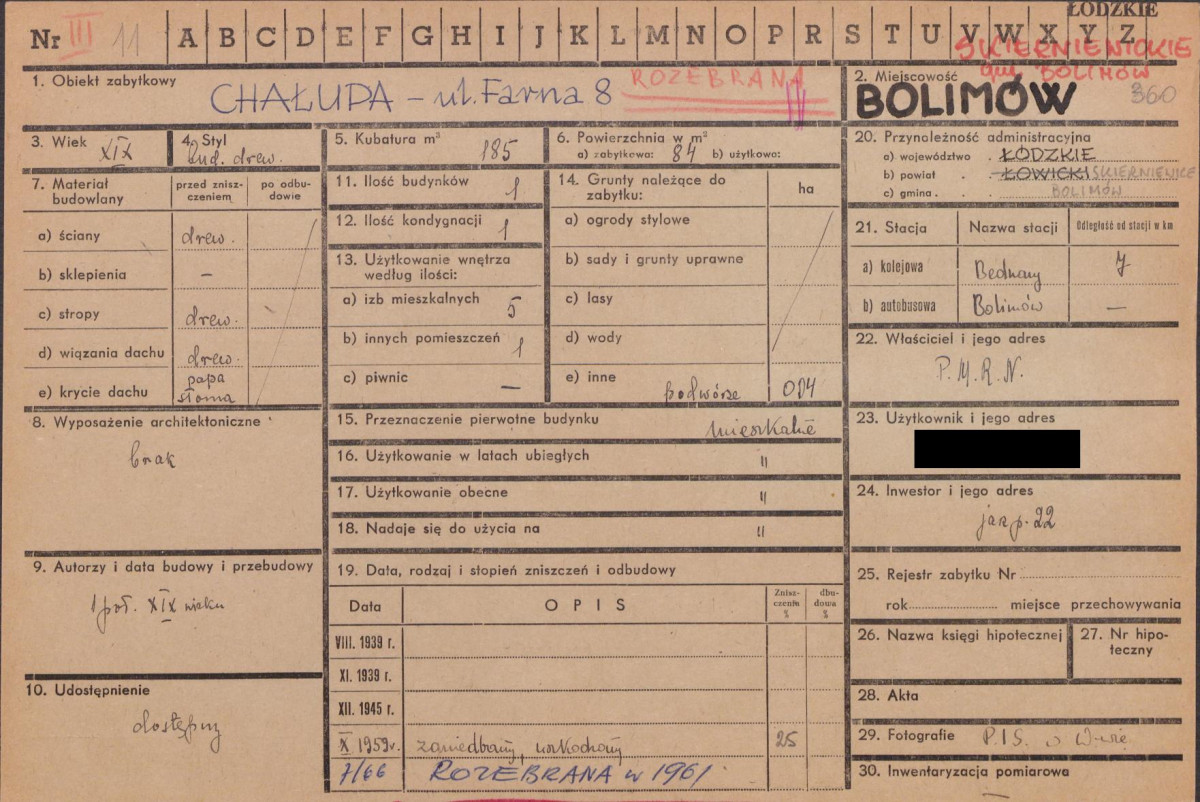 Nr III 11 A B C D E F G H I J K L M N O P R S T U V W X Y Z
ŁÓDZKIE
SKIERNIEWICKIE
gm. BOLIMÓW
1. Obiekt zabytkowy
CHAŁUPA – ul. Farna 8
ROZEBRANA
2. Miejscowość
BOLIMÓW 360
3. Wiek XIX
4. Styl
lud. drew.
5. Kubatura m³ 185
6. Powierzchnia w m²
a) zabytkowa: 84 b) użytkowa:
7. Materiał budowlany
przed znisz-
czeniem
po odbu-
dowie
a) ściany drew.
b) sklepienia –
c) stropy drew.
d) wiązania dachu drew.
e) krycie dachu papa
słoma
8. Wyposażenie architektoniczne
brak
9. Autorzy i data budowy i przebudowy
1 poł. XIX wieku
10. Udostępnienie
dostępny
11. Ilość budynków 1
12. Ilość kondygnacji 1
13. Użytkowanie wnętrza
według ilości:
a) izb mieszkalnych 5
b) innych pomieszczeń 1
c) piwnic –
14. Grunty należące do
zabytku:
ha
a) ogrody stylowe
b) sady i grunty uprawne
c) lasy
d) wody
e) inne podwórze 0,04
15. Przeznaczenie pierwotne budynku
mieszkalne
16. Użytkowanie w latach ubiegłych "
17. Użytkowanie obecne "
18. Nadaje się do użycia na "
19. Data, rodzaj i stopień zniszczeń i odbudowy
Data OPIS
Znisz-
czenia
%
dbu-
dowa
%
VIII. 1939 r.
XI. 1939 r.
XII. 1945 r.
X 1959 r. zaniedbany, 25
7/66 ROZEBRANA w 1961
20. Przynależność administracyjna
a) województwo . ŁÓDZKIE
b) powiat . ŁOWICKI SKIERNIEWICE
c) gmina . BOLIMÓW
21. Stacja
Nazwa stacji
Odległość od stacji w km
a) kolejowa Bednary 7
b) autobusowa Bolimów –
22. Właściciel i jego adres
P.M.R.N.
23. Użytkownik i jego adres
24. Inwestor i jego adres
jak p. 22
25. Rejestr zabytku Nr
rok miejsce przechowywania
26. Nazwa księgi hipotecznej
27. Nr hipo-
teczny
28. Akta
29. Fotografie P.I.S. w W-wie
30. Inwentaryzacja pomiarowa
–